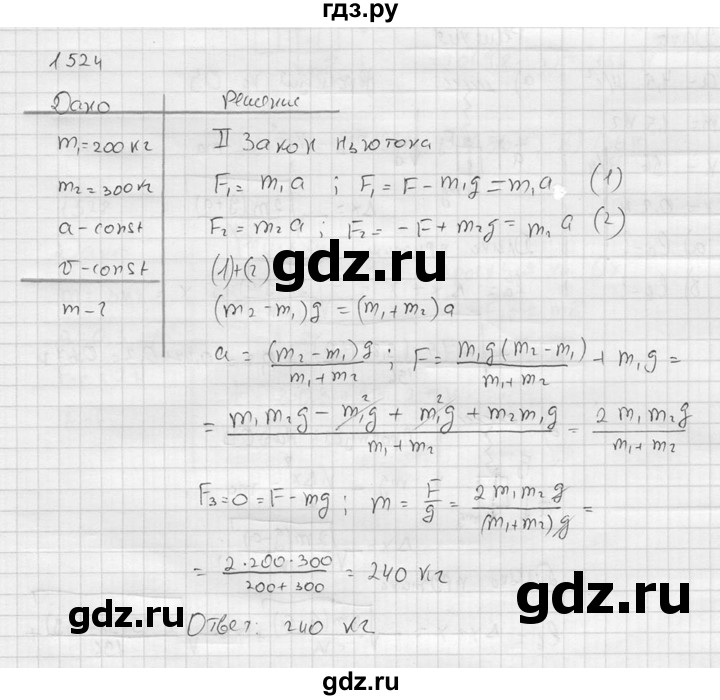 гдз.ру
1524
Дано Решение
m₁=200 кг II Закон Ньютона
m₂=300 кг F₁ = m₁a ; F₁ = F − m₁g = m₁a (1)
a - const F₂ = m₂a ; F₂ = −F + m₂g = m₂a (2)
v - const (1)+(2)
gdz.ru
m - ? (m₂−m₁)g = (m₁+m₂)a
a = (m₂−m₁)g / m₁+m₂ ; F = m₁g(m₂−m₁) / m₁+m₂ + m₁g =
= m₁m₂g − m₁²g + m₁²g + m₂m₁g / m₁+m₂ = 2m₁m₂g / m₁+m₂
F₃=0=F−mg ; m = F/g = 2m₁m₂g / (m₁+m₂)g =
= 2·200·300 / 200+300 = 240 кг
gdz.ru
gdz.ru
Ответ: 240 кг
gdz.ru